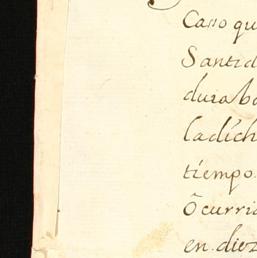 Caso qu
Santid
duraba
ladích
tíempo.
Õcurria
en diez